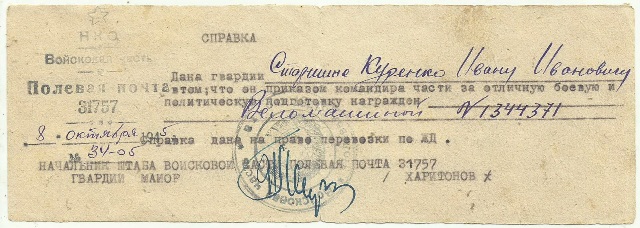 НКО
Войсковая часть
Полевая почта
31757
8. октября 1945
№ 34-05
СПРАВКА
Дана гвардии Старшине Куценко Ивану Ивановичу
в том, что он приказом командира части за отличную боевую и
политическую подготовку награжден
Веломашиной N 1344371
Справка дана на право перевозки по ЖД.
НАЧАЛЬНИК ШТАБА ВОЙСКОВОЙ ЧАСТИ ПОЛЕВАЯ ПОЧТА 31757
ГВАРДИИ МАИОР / ХАРИТОНОВ /